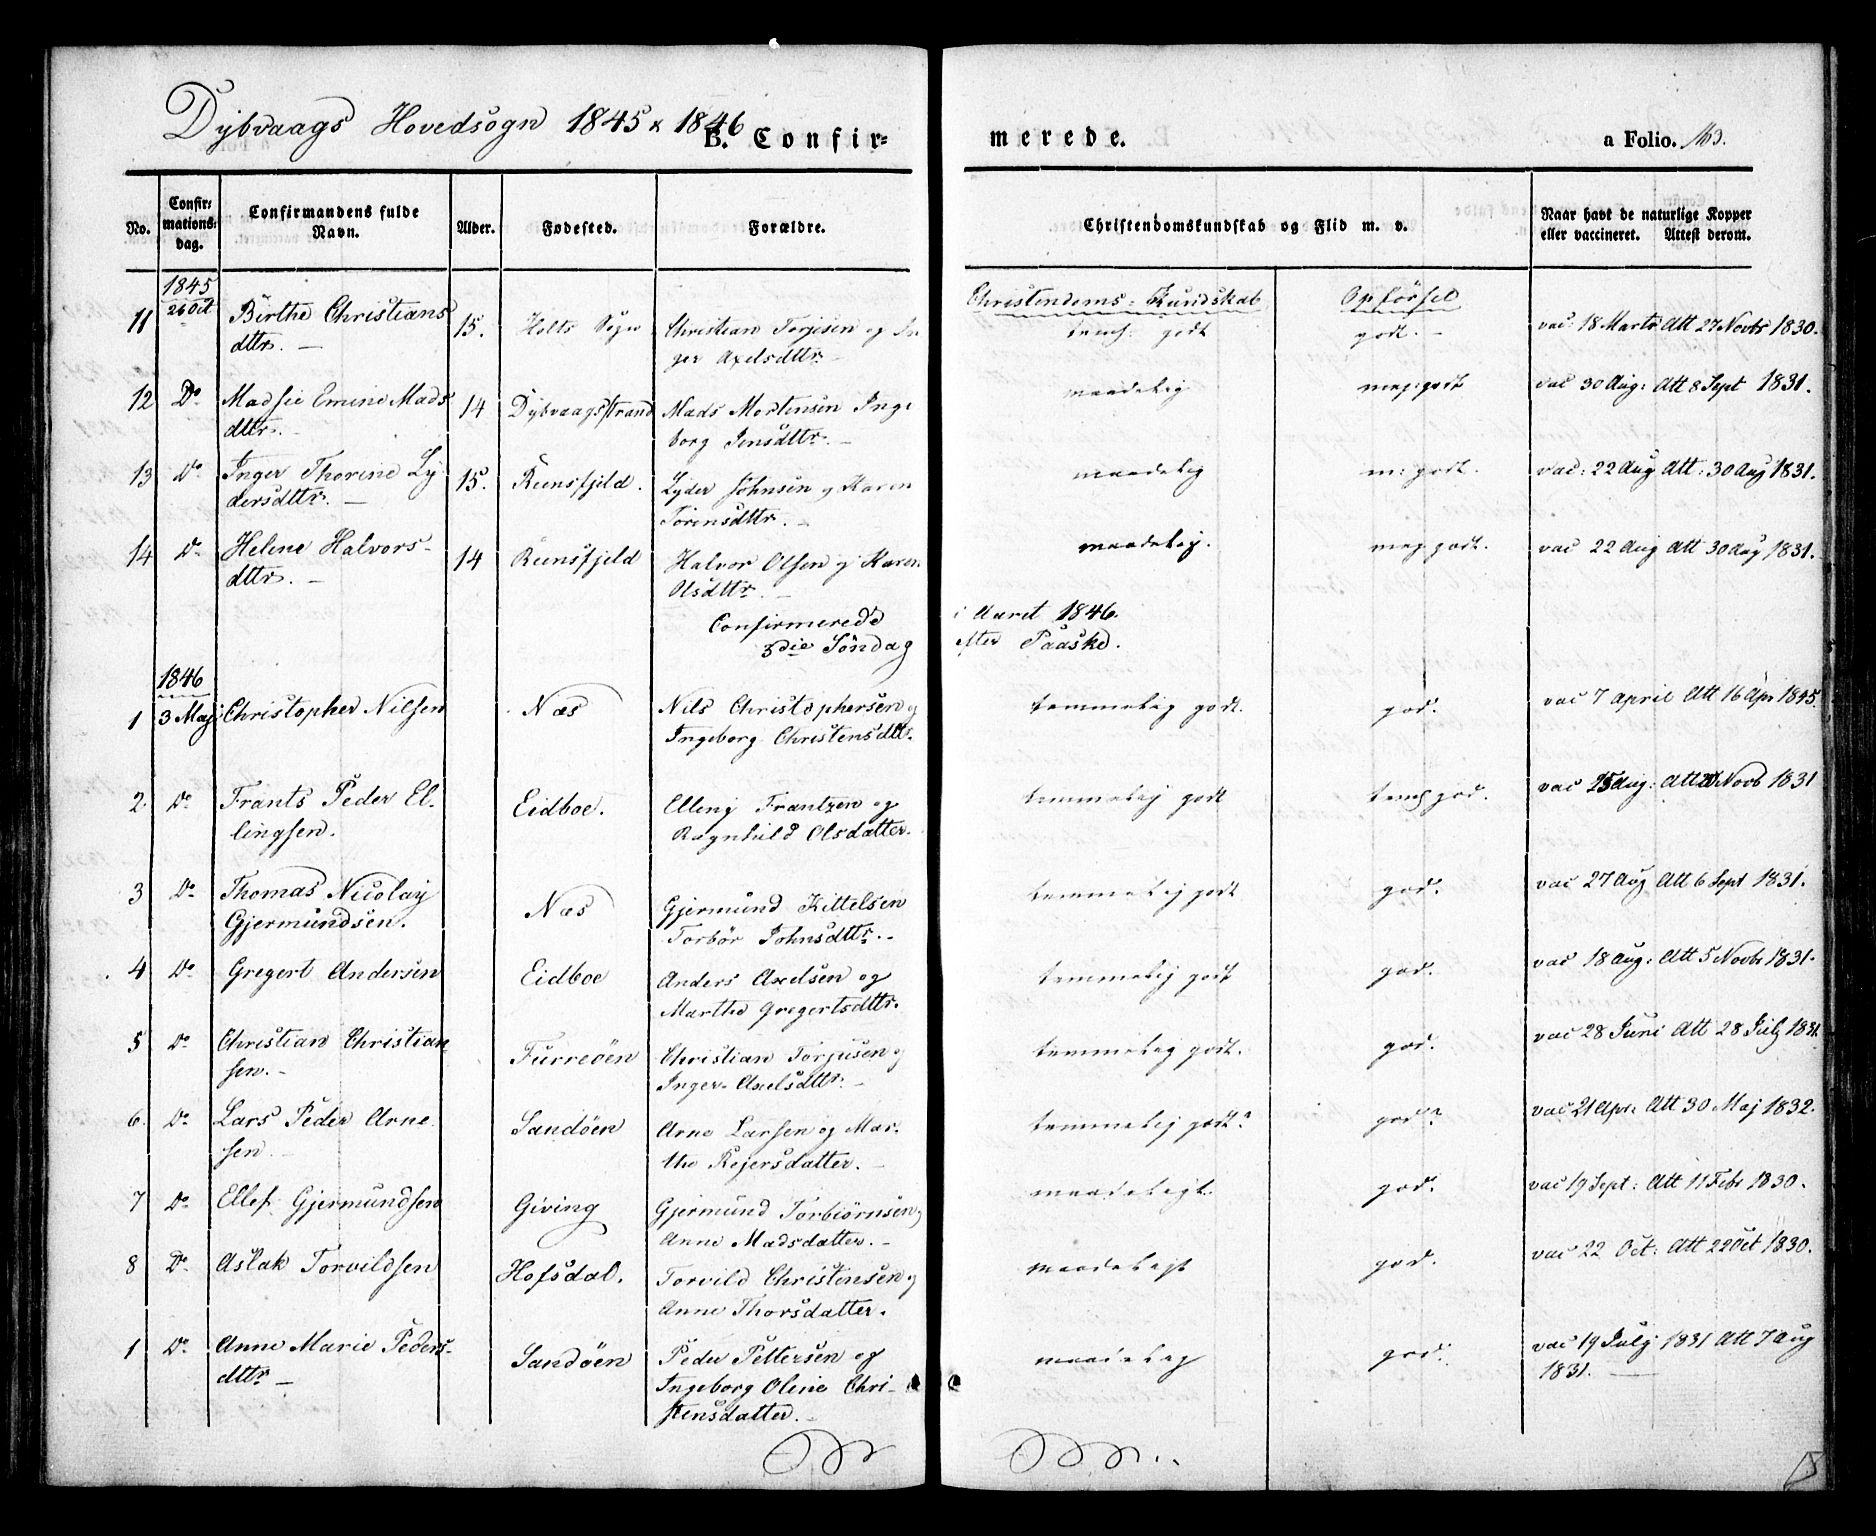 Dybvaags Hovedsogn 1845 & 1846
B. Confirmerede.
a Folio. 163.
No. Confirmations-dag. Confirmandens fulde Navn. Alder. Fødested. Forældre. Christendomskundskab og Flid m. v. Naar havt de naturlige Kopper eller vaccineret. Attest derom.
1845 Christendoms-Kundskab Opførsel
11 26 Oct Birthe Christians 15. Holts Sogn Christian Torjesen og In temh: godt god. vac: 18 Marts Att 27 Novbr 1830.
dttr. ger Axelsdttr
12 Do Madsie Emine Mads 14 Dybvaagstrand Mads Mortensen Inge maadelig meg: godt vac 30 Aug: Att 8 Sept 1831.
dttr. borg Jensdttr.
13 Do Inger Thorine Ly 15. Reensfjeld. Lyder Johnsen og Karen maadelig m: godt. vac: 22 Aug Att: 30 Aug 1831.
dersdttr. Torensdttr.
14 Do Helene Halvors- 14 Reensfjeld Halvor Olsen og Karen maadelig. meg godt. vac 22 Aug Att 30 Aug 1831.
dttr. Olsdttr.
Confirmerede i Aaret 1846.
3die Søndag efter Paaske.
1846
1 3 Maj Christopher Nilsen Næs Nils Christophersen og temmelig godt. god. vac 7 April Att 16 Apr 1845.
Ingeborg Christensdttr.
2 Do Frants Peder El- Eidboe. Elling Frantzen og temmelig godt temh god. vac 25 Aug: Att Novb 1831
lingsen. Ragnhild Olsdatter.
3 Do Thomas Nicolay Næs Gjermund Kittelsen temmelig godt god. vac 27 Aug Att 6 Sept 1831.
Gjermundsen. Torbør Johnsdttr.
4 Do Gregert Andersen Eidboe Anders Axelsen og temmelig godt god. vac 18 Aug: Att 5 Novbr 1831.
Marthe Gregertsdttr.
5 Do Christian Christian- Furreøen Christian Torjusen og temmelig godt. god. vac 28 Juni Att 28 July 1831.
sen. Inger Axelsdttr.
6 Do Lars Peder Arne Sandøen Arne Larsen og Mar- temmelig godt? god? vac 21 Apr: Att 30 Maj 1832.
sen. the Rejersdatter.
7 Do Ellef Gjermundsen Giving Gjermund Torbiørnsen og maadeligt. god. vac 19 Sept: Att 11 Febr 1830.
Anne Madsdatter.
8 Do Aslak Torvildsen Hofsdal. Torvild Christensen og maadeligt god. vac 22 Oct: Att 22 Oct 1830.
Anne Thorsdatter.
1 Do Anne Marie Peders- Sandøen Peder Pettersen og maadelig god. vac 19 July 1831 Att 7 Aug
dttr Ingeborg Oline Chri- 1831.
stensdatter.